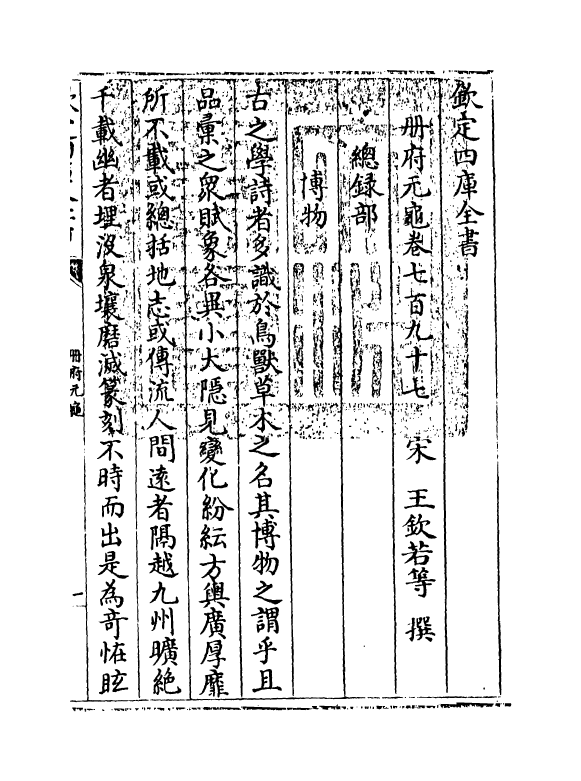 欽定四庫全書
册府元龜卷七百九十七　宋　王欽若等　撰
總録部
博物
古之學詩者多識於鳥獸草木之名其博物之謂乎且
品彚之衆賦象各異小大隠見變化紛紜方輿廣厚靡
所不載或總括地志或傳流人間遠者隔越九州曠絶
千載幽者埋沒泉壤磨滅篆刻不時而出是為竒恠眩
册府元龜
一